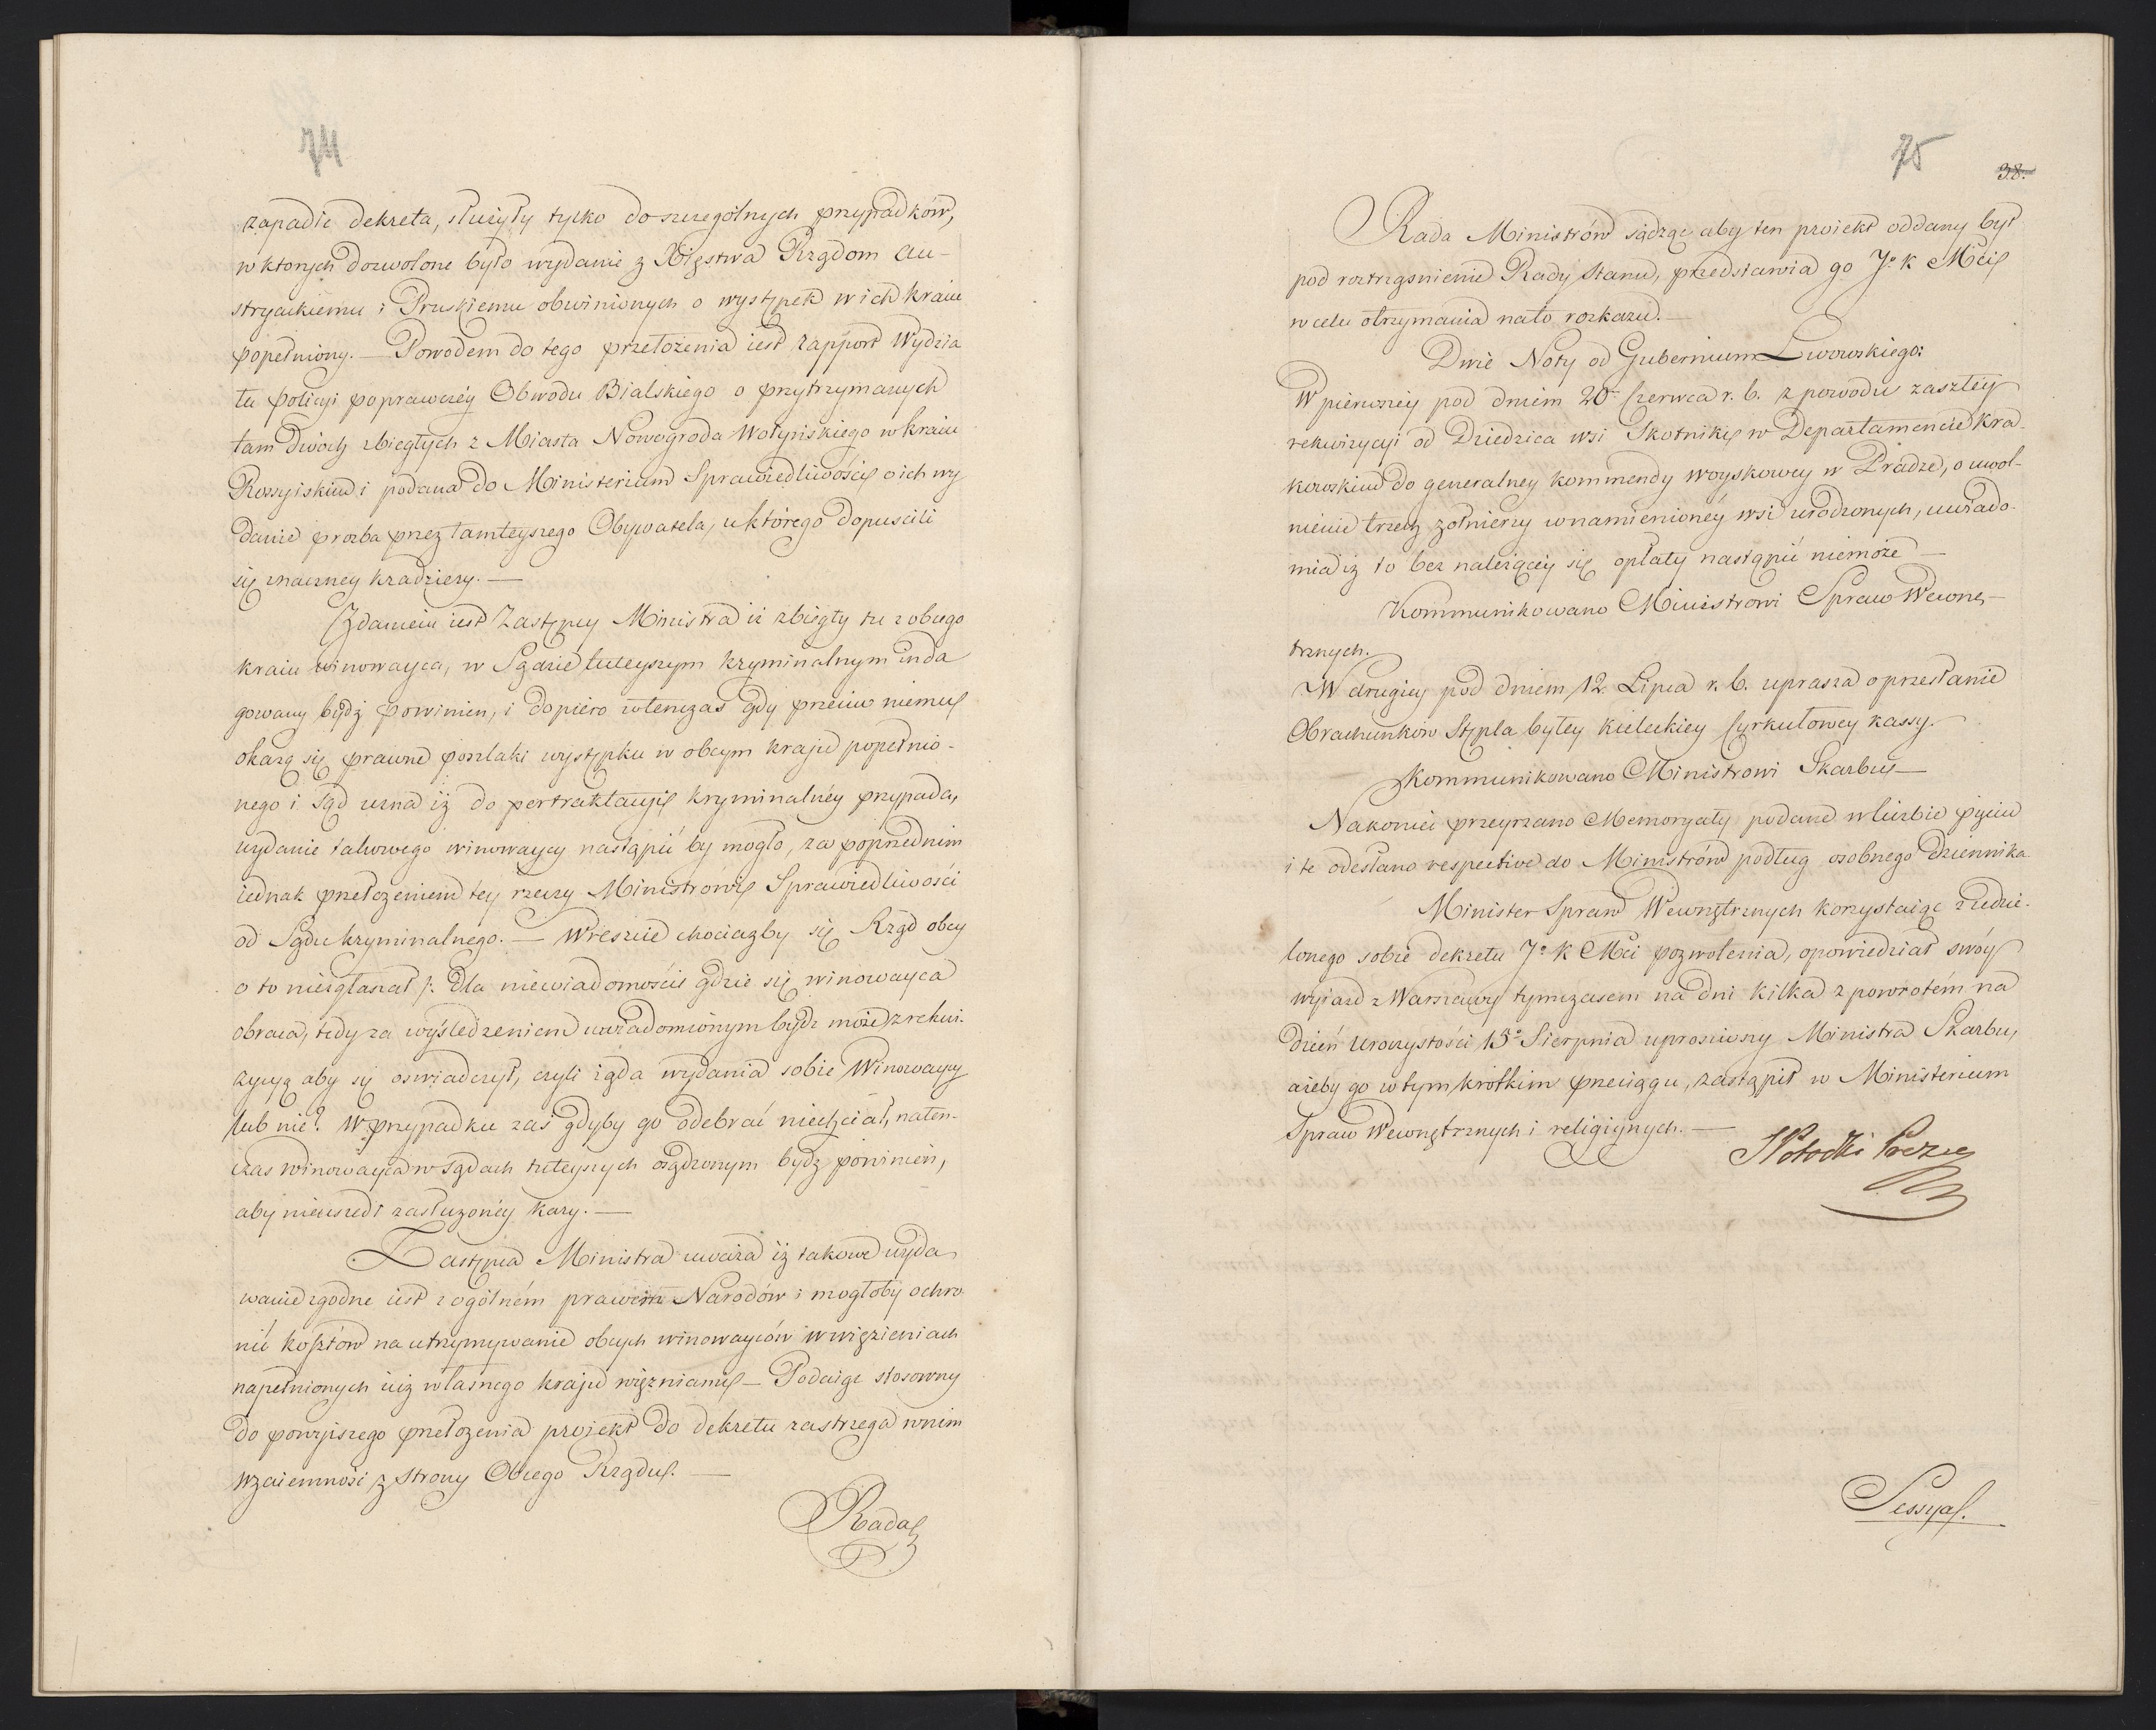 74
zapadłe dekreta, służyły tylko do szczególnych przypadków,
w ktorych dozwolone było wydanie z Xięstwa Rządom Au-
stryackiemu i Pruskiemu obwinionych o występek w ich kraiu
popełniony. — Powodem do tego przełożenia iest rapport Wydzia
łu policyi poprawczéy Obwodu Bialskiego o przytrzymanych
tam dwóch zbiegłych z Miasta Nowogroda Wołyńskiego w kraiu
Rossyiskim i podana do Ministerium Sprawiedliwości o ich wy
danie prozba przez tamteyszego Obywatela, u którego dopuscili
się znaczney kradzieży. —
Zdaniem iest Zastępcy Ministra iż zbiegły tu z obcego
kraiu winowayca, w Sądzie tuteyszym kryminalnym inda
gowany bydź powinien, i dopiero wtenczas gdy przeciw niemu
okażą się prawne poszlaki występku w obcym kraju popełnio-
nego i Sąd uzna iż do pertraktacyi kryminalnéy przypada,
wydanie takowego winowaycy nastąpić by mogło, za poprzednim
iednak przełożeniem tey rzeczy Ministrowi Sprawiedliwości
od Sądu kryminalnego. — Wreszcie chociażby się Rząd obcy
o to niezgłaszał /: dla niewiadomości gdzie się winowayca
obraca, tedy za wyśledzeniem uwiadomionym bydź może z rekwi-
zycyą aby się oswiadczył, czyli żąda wydania sobie Winowaycy
lub nie? W przypadku zaś gdyby go odebrać niechciał, naten-
czas winowayca w sądach tuteyszych osądzonym bydź powinien,
aby nieuszedł zasłużonéy kary. —
Zastępca Ministra uważa iż takowe wyda
wanie zgodne iest z ogólném prawem Narodów i mogłoby ochro
nić kosztów na utrzymywanie obcych winowayców w więzieniach
napełnionych iuż własnego kraju więzniami — Podaiąc stosowny
do powyższego przełożenia proiekt do dekretu zastrzega w nim
wzaiemności z strony Obcego Rządu. —
Rada
75
38.
Rada Ministrów sądząc aby ten proiekt oddany był
pod roztrząsnienie Rady Stanu, przedstawia go Jo. K Mści
w celu otrzymania na to rozkazu. —
Dwie Noty od Gubernium Lwowskiego:
W pierwszéy pod dniem 20 Czerwca r. b. z powodu zaszłéy
rekwizycyi od Dziedzica wsi Skotniki w Departamencie Kra-
kowskim do generalney kommendy woyskowey w Pradze, o uwol-
nienie trzech żołnierzy w namienionéy wsi urodzonych, uwiado-
mia iż to bez należącéy się opłaty nastąpić niemoże —
Kommunikowano Ministrowi Spraw Wewnę-
trznych.
W drugiéy pod dniem 12. Lipca r. b. uprasza o przesłanie
Obrachunków Stępla byłey kieleckiey Cyrkułowey kassy. —
Kommunikowano Ministrowi Skarbu —
Nakoniec przeyrzano Memoryały podane w liczbie pięciu
i te odesłano respective do Ministrów podług osobnego dziennika
Minister Spraw Wewnętrznych korzystaiąc z udzie-
lonego sobie dekretu Jo. K Mci pozwolenia, opowiedział swóy
wyiazd z Warszawy tymczasem na dni kilka z powrotém na
dzień uroczystości 15o Sierpnia uprosiwszy Ministra Skarbu,
ażeby go w tym krótkim przeciągu, zastąpił w Ministerium
Spraw Wewnętrznych i religiynych. —
S Potocki Prezes
Sessya.